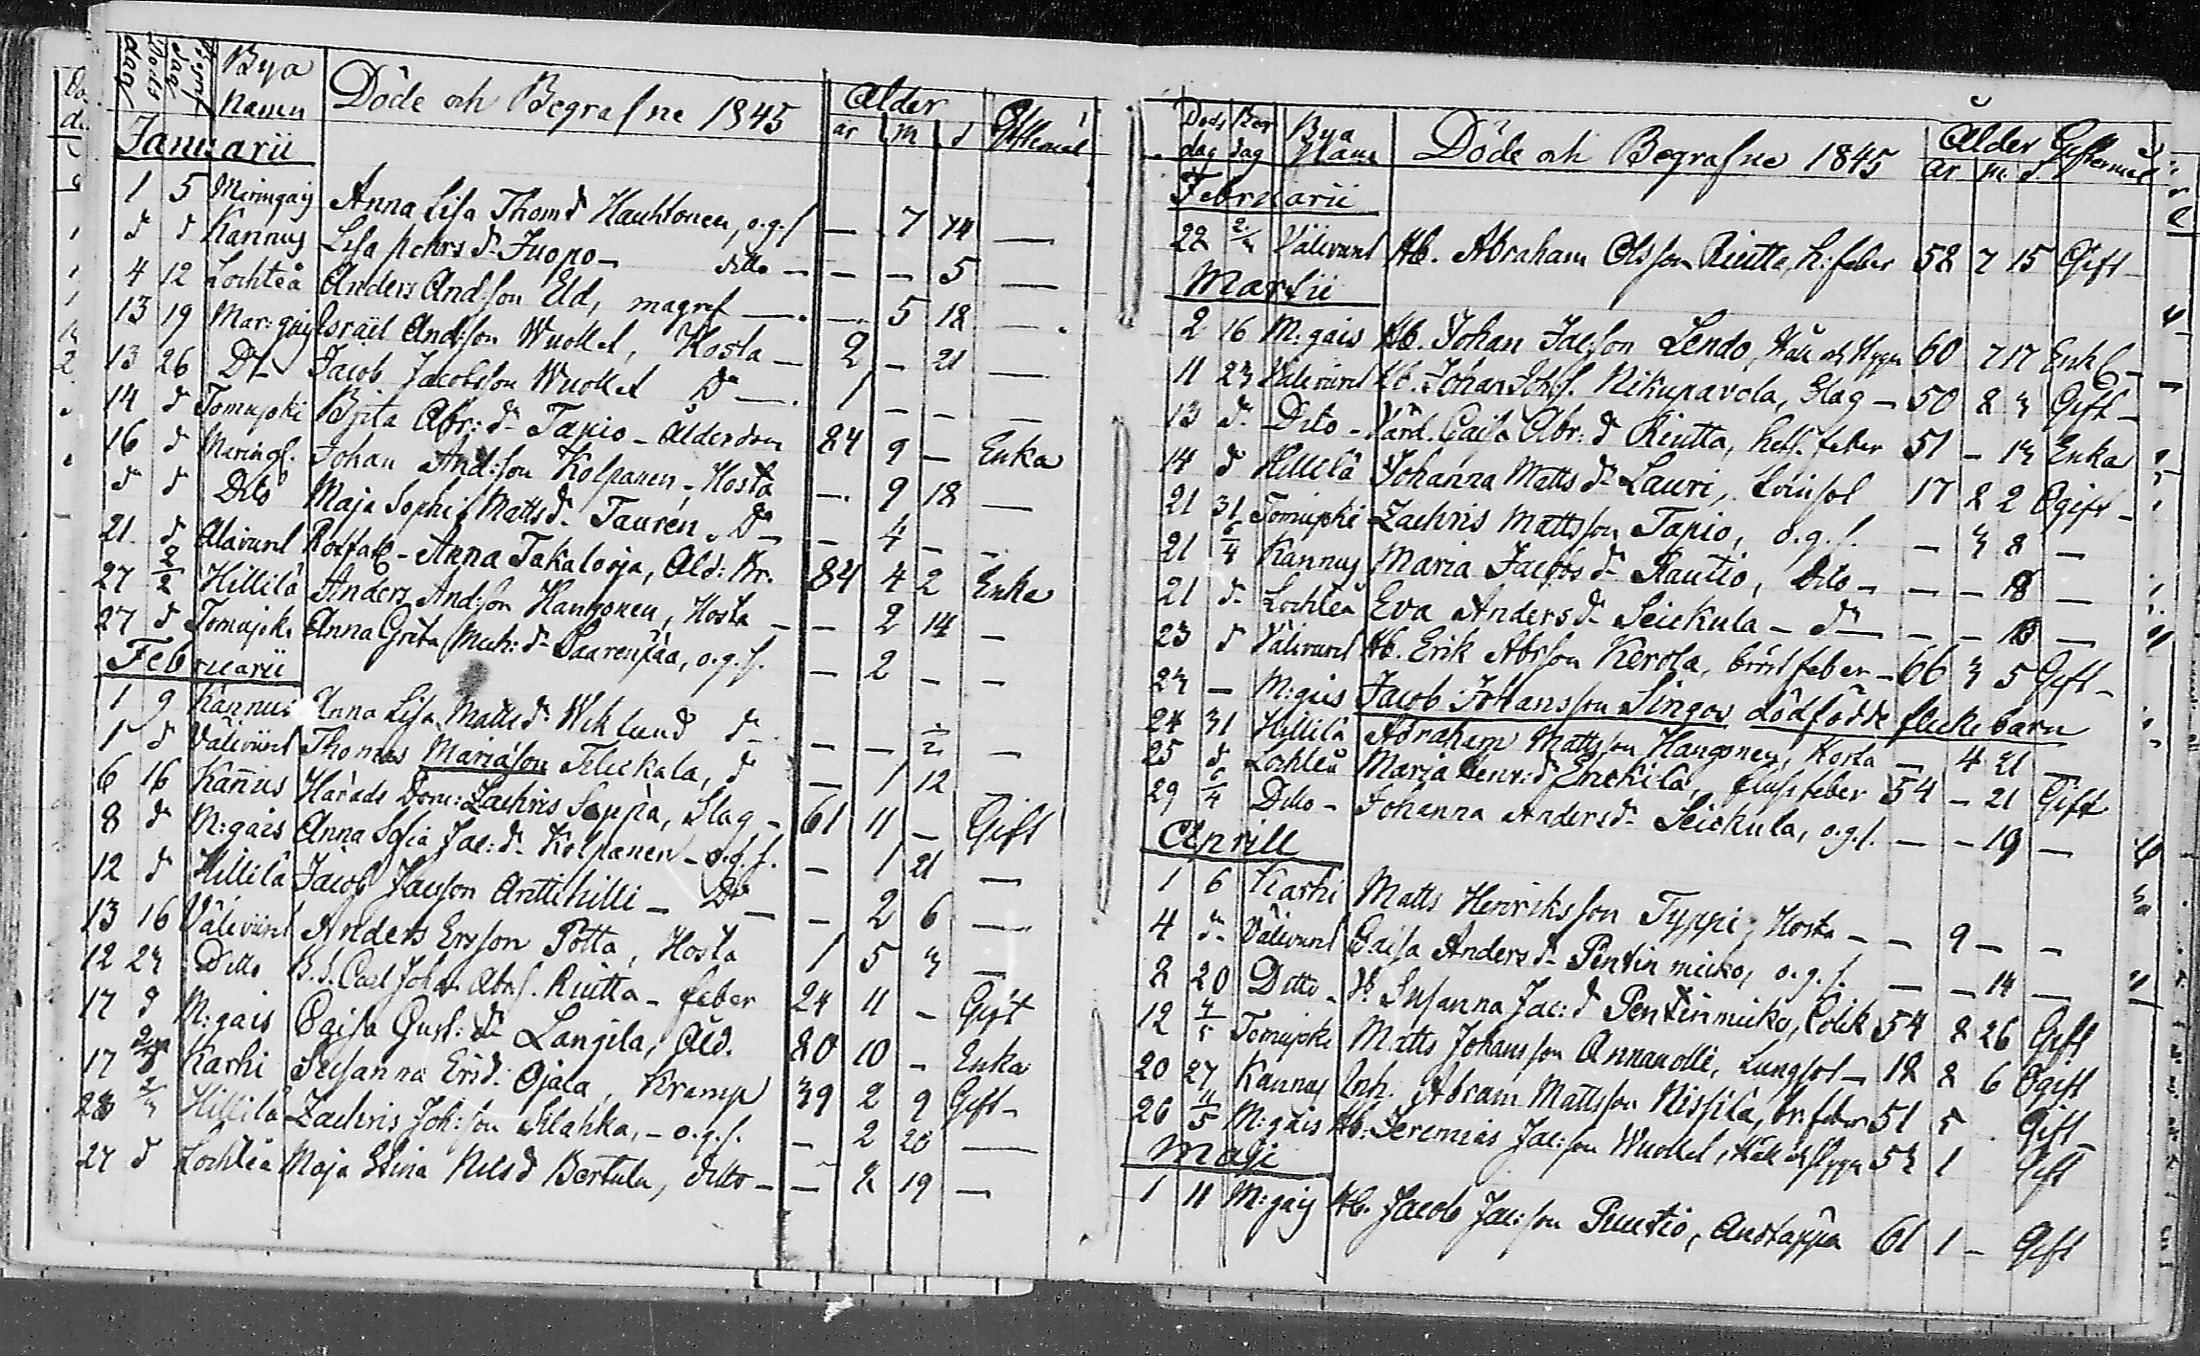 Döds dag Begrf dag Bya Namn Döde och Begrafne 1845 Ålder år m d Giftermål
Januarii
1 5 Maringais Anna Lisa Thom.d Hauhtonen, o.g.s. — 7 14 —
d d Kannus Lisa Pehrs d. Juopo — ditto — — — 5 —
4 12 Lochteå Anders Andsson Eld, magref — — 5 18 —
13 19 Mar:gais Israël And:son Wuollet, Hosta — 2 — 21 —
13 26 Do Jacob Jacobsson Wuollet Do — 1 — — —
14 d Tomujoki Brita Abr: d. Tapio — Ålderdom 84 9 — Enka
16 d Marings. Johan And:son Kolpanen — Hosta — 9 18 —
d d Dito Maja Sophi Matts d. Taurén, Do — — 4 — —
21 d Alavurl Anna Takalooja, Åld: Kr. 84 4 2 Enka
27 2/2 Hillilä Anders And:son Hangonen, Hosta — — 2 14 —
27 d Tomujok. Anna Greta Mich: d. Saarenpää, o.g.s. — 2 — —
Februarii
1 9 Kannus Anna Lisa Matts d. Wiklund d — — — 1/2 —
1 d Välivurl Thomas Mariason Flickala, d — 1 12 —
6 16 Kannus Härads Dom: Zachris Soppa, Slag — 61 11 — Gift
8 d M:gais Anna Sofia Jac: d. Kolpanen — o.g.s. — 1 21 —
12 d Hillilä Jacob Jacsson Anttihilli — Do — — 2 6 —
13 16 Välivurl Anders Ersson Potta, Hosta 1 5 3 —
12 23 Ditto B.S. Carl Joh. Abrs. Riutta — feber 24 11 — Gift
17 d M:gais Caisa Gust: d. Langila, Åld. 80 10 — Enka
17 2/3 Karhi Susanna Ers d. Ojala, Kramp 39 2 9 Gift —
23 2/3 Hillilä Zachris Joh:son Silahka, — o.g.s. — 2 20 —
27 d Lochteå Maja Stina Nils d Bertula, ditto — — 2 19 —
Döds dag Beg dag Bya Namn Döde och Begrafne 1845 Ålder år m d Giftermål
Februarii
22 2/3 Välivurl Hb. Abraham Olsson Riutta, h:feber 58 7 15 Gift
Martii
2 16 M:gais Hb. Johan Jacsson Lendo, Håll och Stygn 60 7 17 Enkl. —
11 23 Välivurl Hb. Johan Joh.s. Nikupavola, Slag — 50 8 3 Gift —
13 d. Dito — Vård. Caisa Abr: d Riutta, het. feber 51 — 13 Enka
14 d Hillilä Johanna Matts d. Lauri, 17 8 2 Ogift —
21 31 Tomujoki Zachris Mattsson Tapio, o.g.s. — 3 8 —
21 6/4 Kannus Maria Jacobs d. Rautio, Dito — — — 18 —
21 d. Lochteå Eva Anders d. Seickula — do — — — 13 —
23 d Välivurl Hb. Erik Abrsson Kerola, bröstfeber — 66 3 5 Gift —
23 — M:gais Jacob Johansson Singos dödfödde flicke barn
24 31 Hillilä Abraham Mattsson Hangonen, Hosta — 4 21 —
25 d Lochteå Maria Henr: d Enckilä, flussfeber 54 — 21 Gift
29 6/4 Dito — Johanna Anders d. Seickula, o.g.s. — — 19 —
Aprill
1 6 Karhi Matts Henriksson Typpi, Hosta — — 9 — —
4 d. Välivurl Caisa Anders d. Pentinmicko, o.g.s. — — 14 —
8 20 Ditto — Susanna Jac: d Pentinmicko, Colik 54 8 26 Gift
12 4/5 Tomujoki Matts Johansson Annanolli, Lungsot — 18 8 6 Ogift
20 27 Kannus Inh. Abram Mattsson Niskila, br.feber 51 5 Gift —
26 11/5 M:gais Hb: Jeremias Jac:son Wuollet, Håll och Stygn 53 1 Gift
Maji
1 11 M:gais Hb. Jacob Jac:son Puutio, Andtäppa 61 1 — Gift